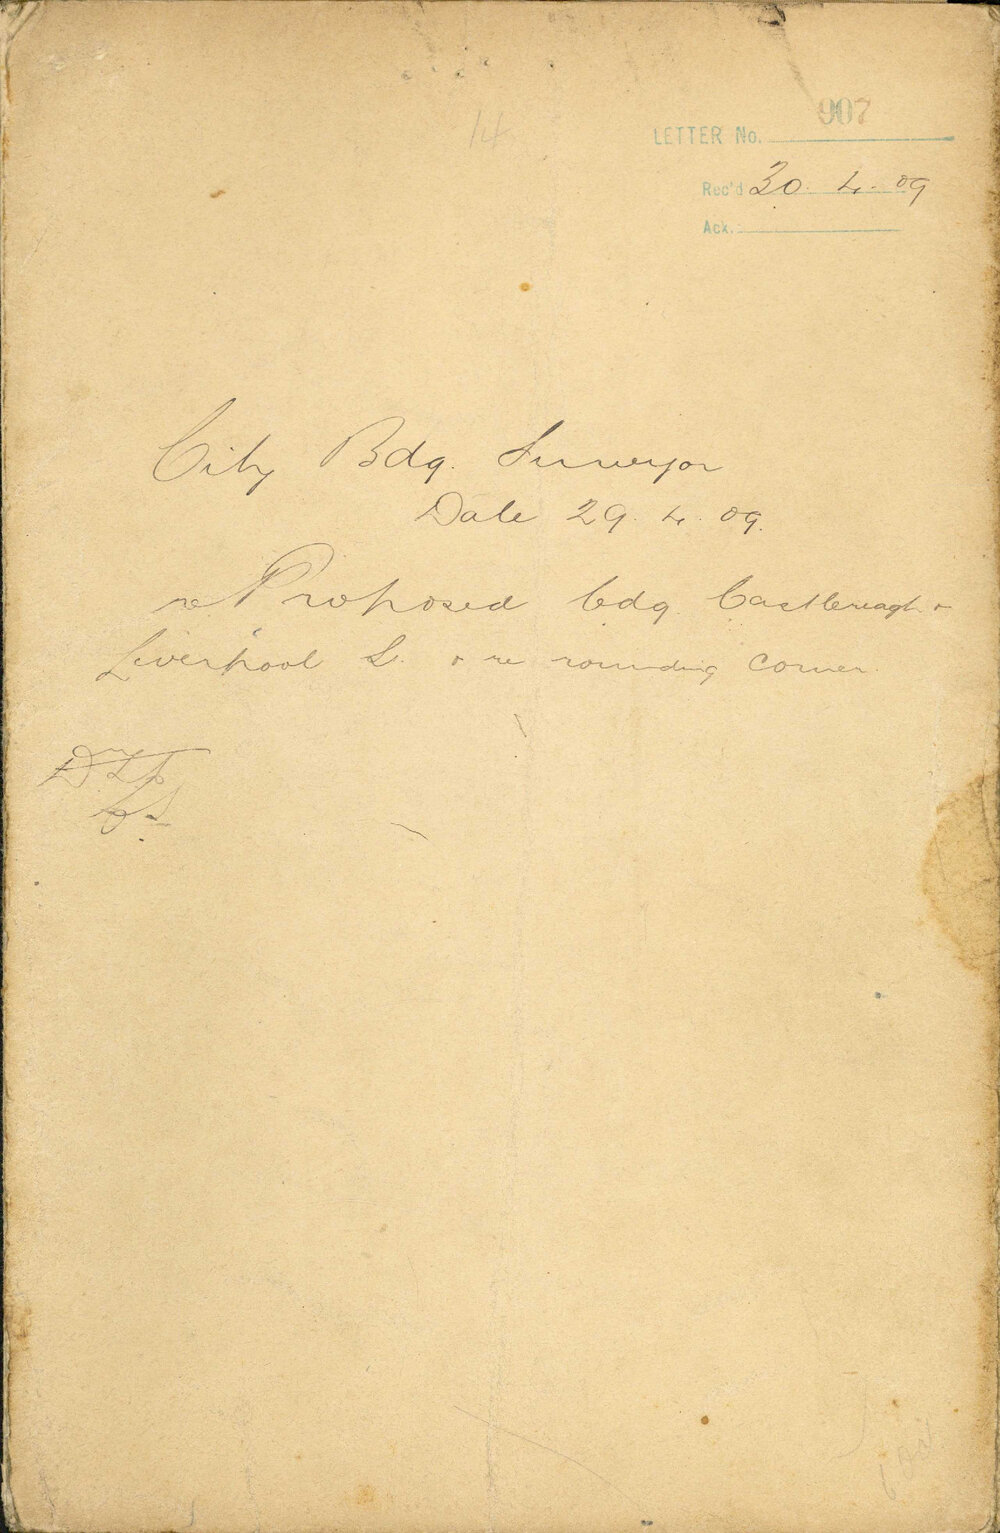 14
907
LETTER No.
Rec'd 30. 4. 09
Ack.
City Bdg. Surveyor
Date 29. 4. 09.
re Proposed bdg. Castlereagh &
Liverpool S. & re rounding corner.